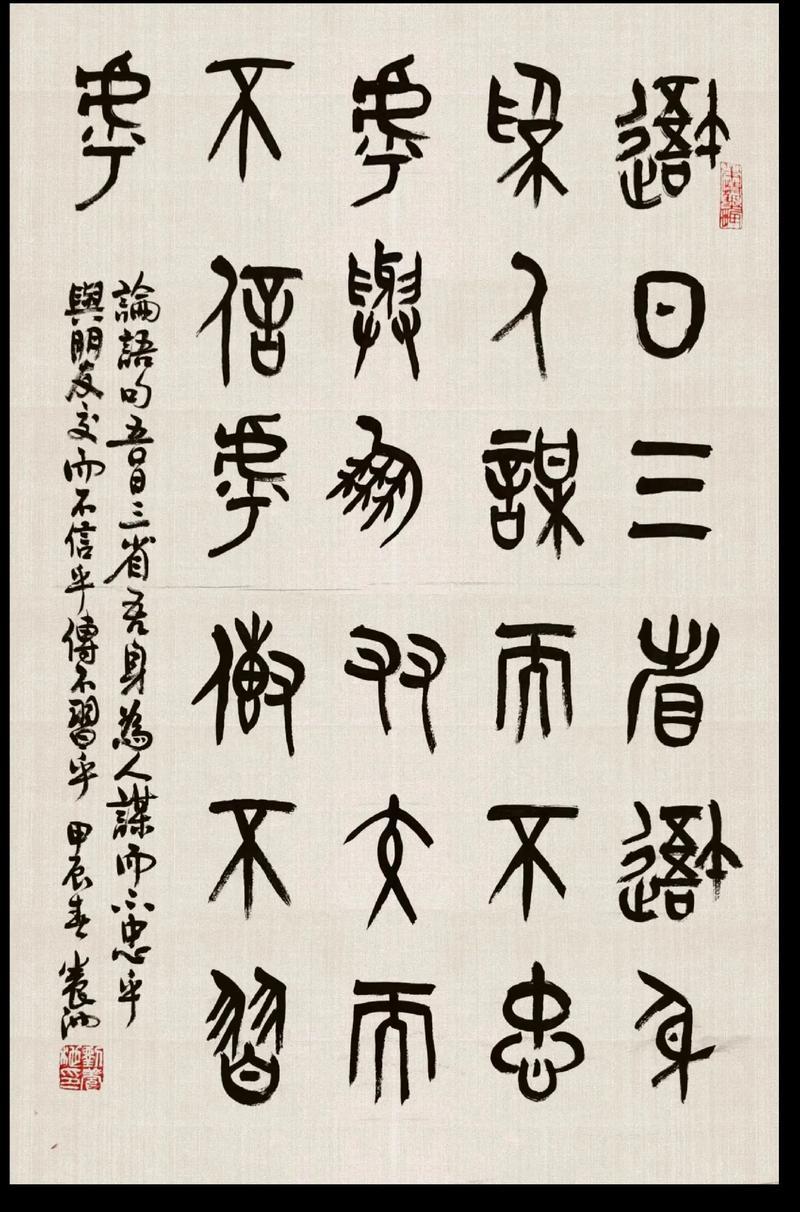 吾日三省吾身
為人謀而不忠
乎與朋友交而
不信乎傳不習
乎
論語句吾日三省吾身為人謀而不忠乎
與朋友交而不信乎傳不習乎 甲辰春